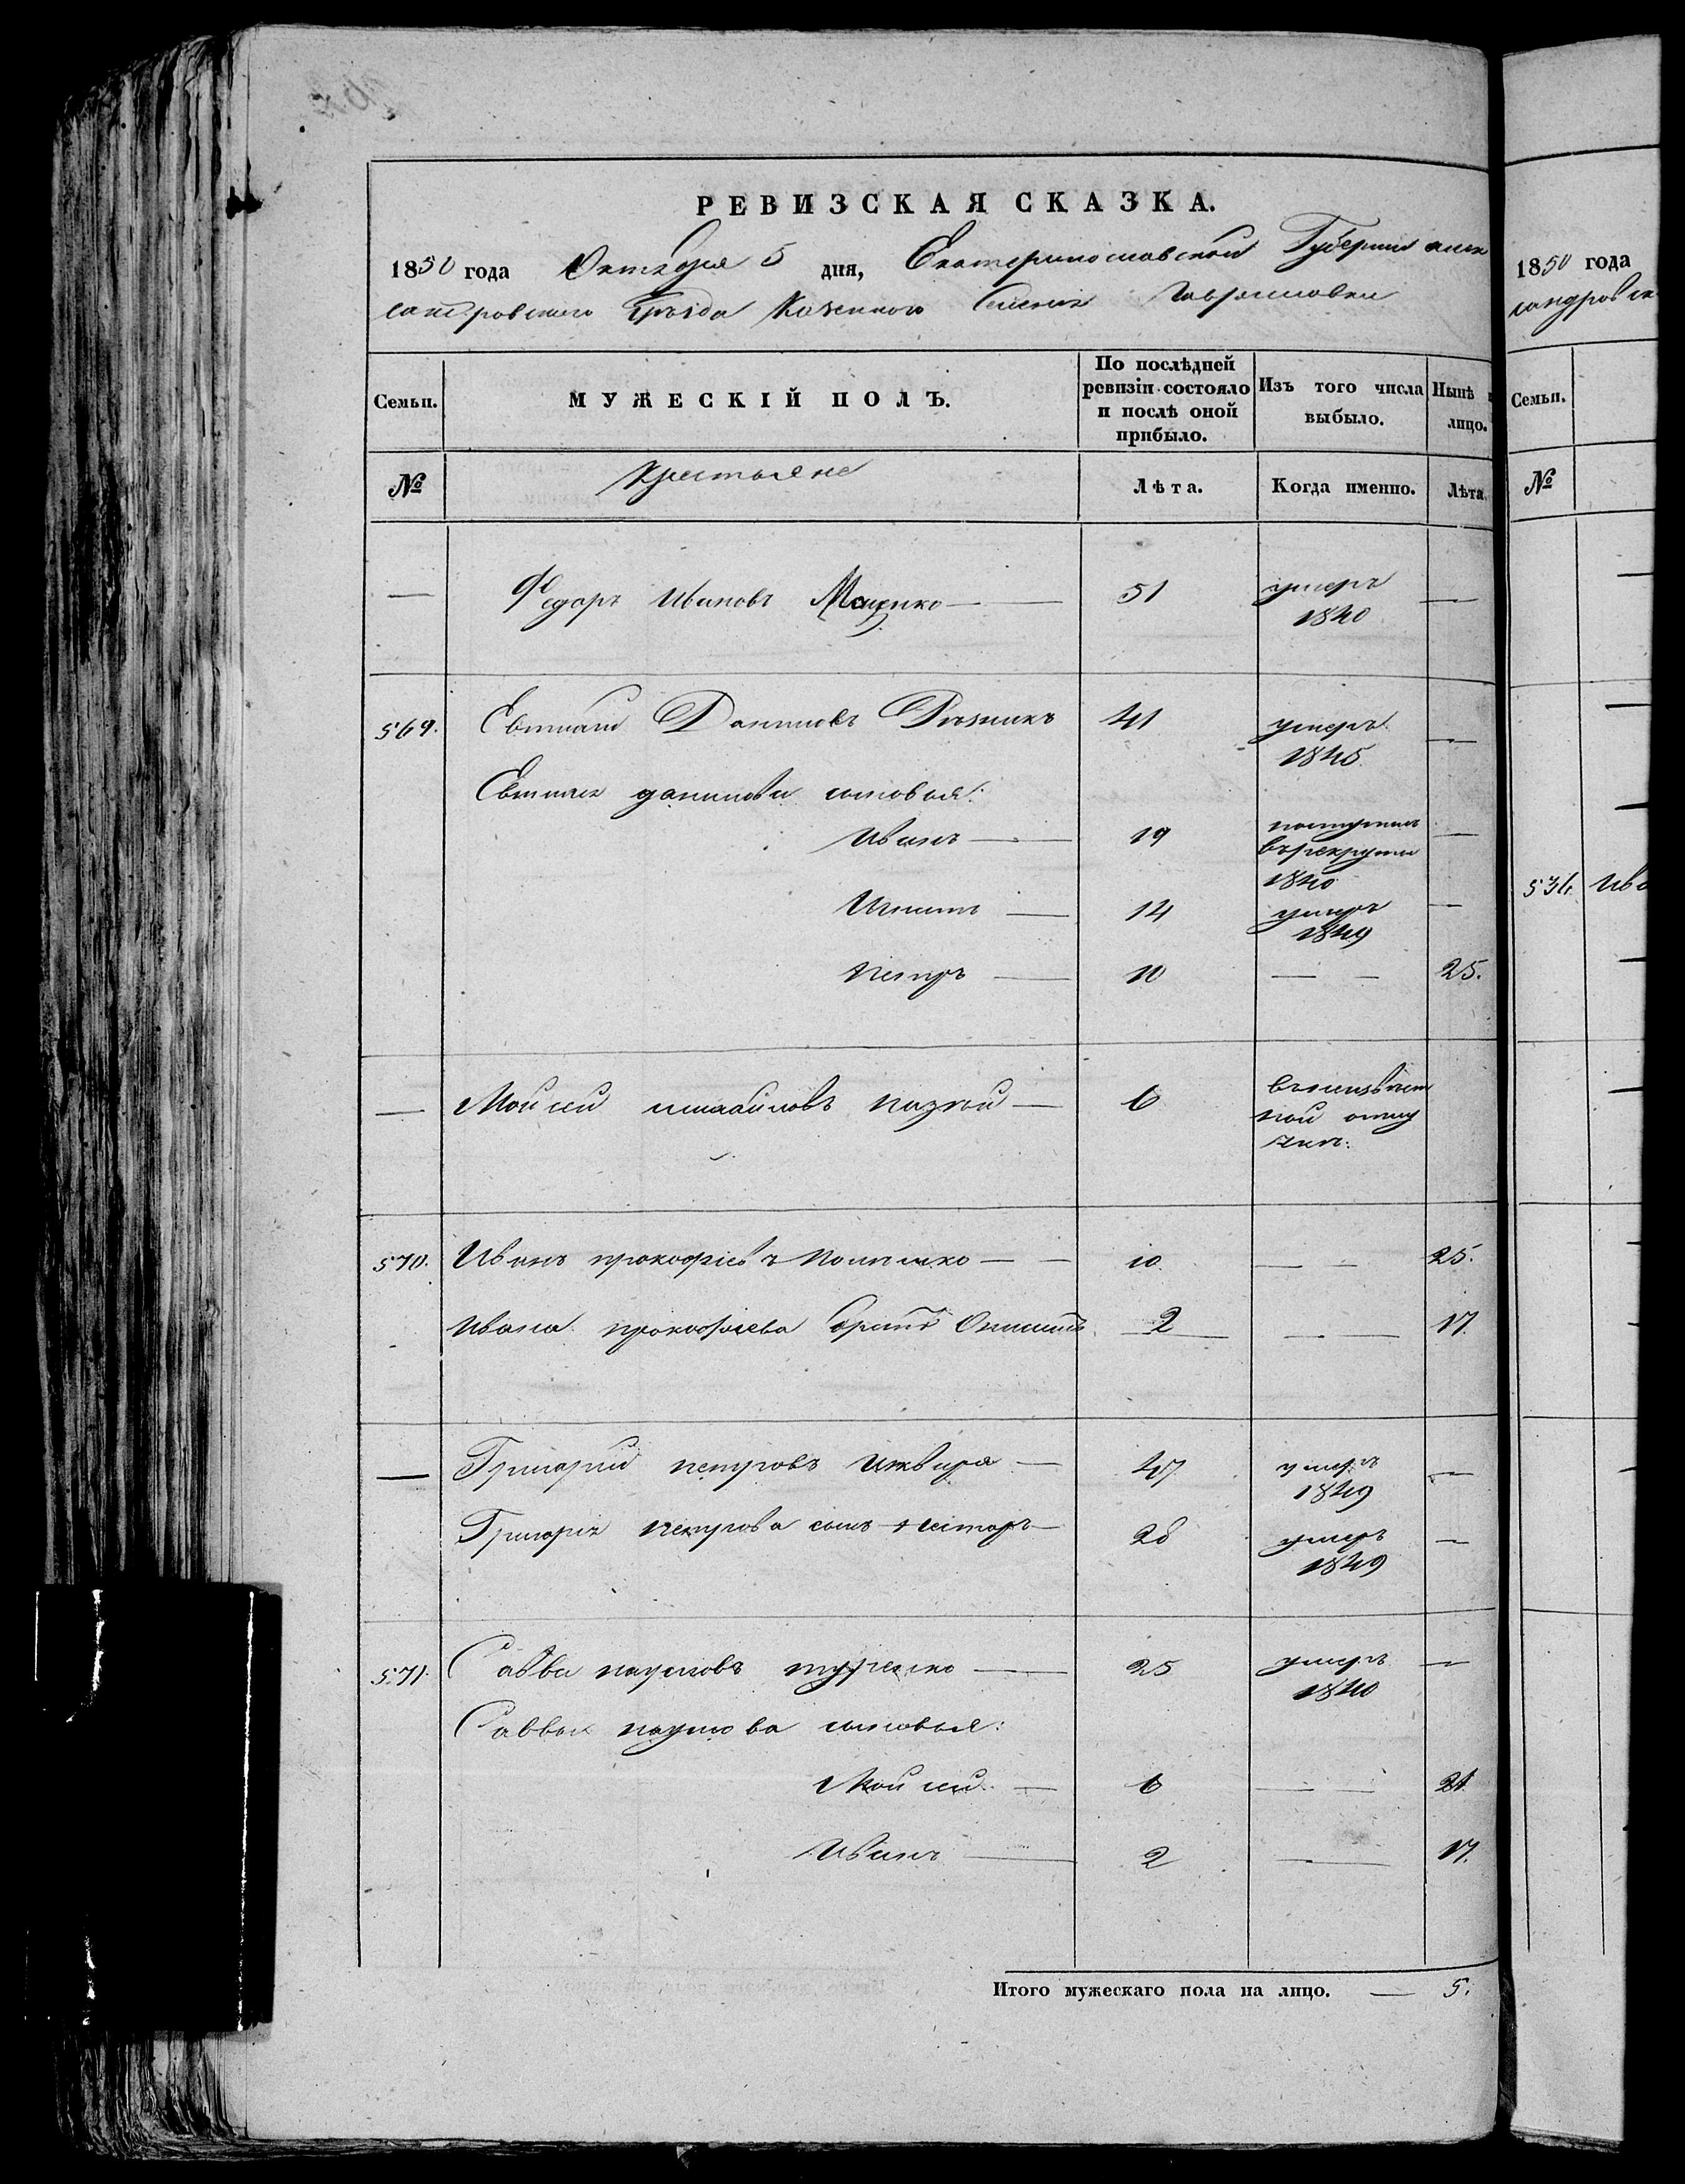 РЕВИЗСКАЯ СКАЗКА.
1850 года Октября 5 дня, Екатеринославской Губернии алек
сандровскаго Уѣзда Казеннаго Селенія Гавриловки
Семьи.
МУЖЕСКІЙ ПОЛЪ.
По послѣдней ревизіи состояло и послѣ оной прибыло.
Изъ того числа выбыло.
Нынѣ
лицо.
№
Крестьяне
Лѣта.
Когда именно.
Лѣта
— Федоръ Ивановъ — 51 умеръ —
1840
569. Евтихій Даниловъ Рѣзникъ 41 умеръ —
1845
Евтихія данилова сыновья:
Иванъ — 19 поступилъ —
въ рекруты
1840
Игнатъ — 14 умеръ —
1849
Петръ — 10 — — 25.
— Мойсей михайловъ — 6 въ неизвѣст
ной отлу
чкѣ:
570. Иванъ прокофіевъ — — 10 — — 25.
Ивана прокофіева братъ 2 — — 17.
— Григорий петровъ — 47 умеръ —
1849
Григорія петрова сынъ Несторъ — 28 умеръ —
1849
571. Савва наумовъ — 25 умеръ —
1840
Саввы наумова сыновья:
Мойсей — 6 — — 21.
Иванъ — 2 — 17.
Итого мужескаго пола на лицо. — 5.
1850 года
сандровск
Семьи.
№
536. Ива